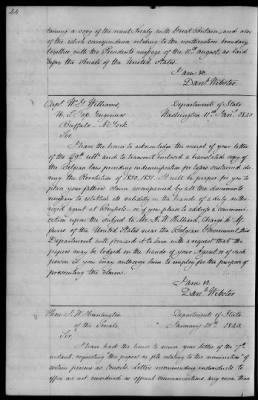 24
taining a copy of the recent treaty with Great Britain, and also
of the entire correspondence relating to the northeastern boundary
together with the President's message of the 11th August, as laid
before the Senate of the United States.
I am &c.
Danl. Webster
Capt. W. G. Williams, Department of State
U. S. Top. Engineer Washington 11 Jan. 1843
Buffalo N. York
Sir
I have the honor to acknowledge the receipt of your letter
of the 29th ult. and to transmit enclosed a translated copy of
the Belgian law providing indemnification for losses sustained du-
ring the Revolution of 1830, 1831. It will be proper for you to
place your father's claim accompanied by all the documents
necessary to establish its validity in the hands of a duly autho-
rized agent at Brussels, or if you please to address a commun-
ication upon the subject to Mr. H. W. Hilliard, Chargé d'Af-
faires of the United States near the Belgian Government, this
Department will forward it to him with a request that the
papers may be lodged in the hands of your Agent or of such
person as you may authorize him to employ for the purpose of
presenting the claim.
I am &c.
Danl. Webster
Hon. J. W. Huntington Department of State
of the Senate. January 1843
Sir
I have had the honor to receive your letter of the
instant, requesting the papers on file relating to the nomination of
certain persons as Consuls. Letters recommending individuals to
office are not considered as official communications any more than